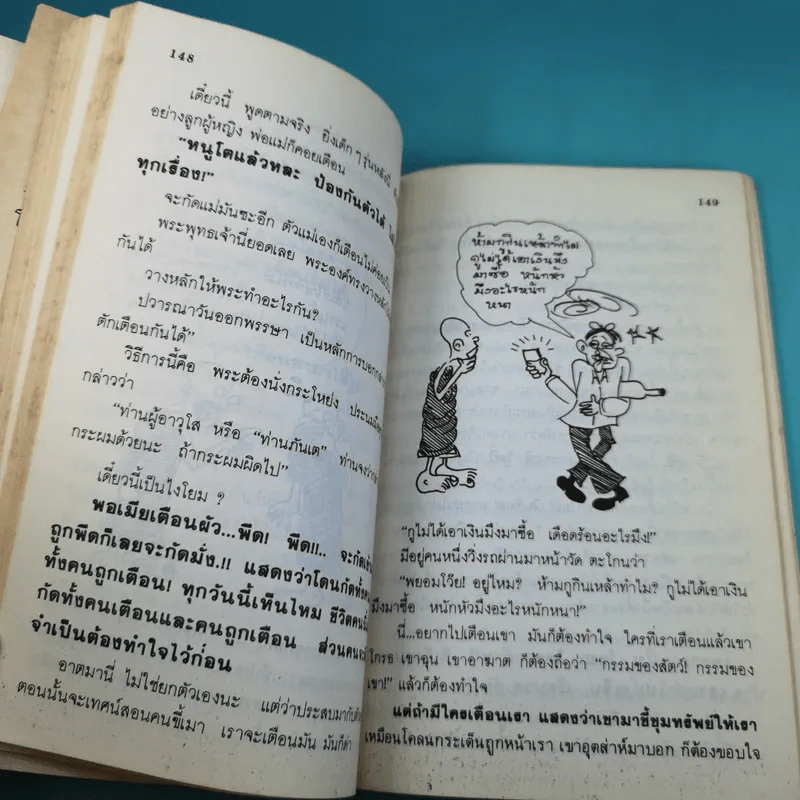 148
เดี๋ยวนี้ พูดตามจริง ยิ่งเด็ก ๆ รุ่นหลังนี่
อย่างลูกผู้หญิง พ่อแม่ก็คอยเตือน
"หนูโตแล้วหละ ป้องกันตัวได้
ทุกเรื่อง!"
จะกัดแม่มันซะอีก ตัวแม่เองก็เตือนไม่ค่อยเป็น
พระพุทธเจ้านี่ยอดเลย พระองค์ทรงวางหลัก
กันได้
วางหลักให้พระทำอะไรกัน?
ปวารณาวันออกพรรษา เป็นหลักการบอกกล่าว
ตักเตือนกันได้"
วิธีการนี้คือ พระต้องนั่งกระโหย่ง
กล่าวว่า
"ท่านผู้อาวุโส หรือ "ท่านภันเต" ท่านจง
กระผมด้วยนะ ถ้ากระผมผิดไป"
เดี๋ยวนี้เป็นไงโยม ?
พอเมียเตือนผัว...พืด! พืด!!.. จะกัด
ถูกพืดก็เลยจะกัดมั่ง.!! แสดงว่าโดนกัดทั้ง
ทั้งคนถูกเตือน! ทุกวันนี้เห็นไหม ชีวิตคน
กัดทั้งคนเตือนและคนถูกเตือน ส่วนคน
จำเป็นต้องทำใจไว้ก่อน
อาตมานี่ ไม่ใช่ยกตัวเองนะ แต่ว่าประสบมากับ
ตอนนั้นจะเทศน์สอนคนขี้เมา เราจะเตือนมัน มันก็ด่า
149
ห้ามกูกินเหล้าทำไม
กูไม่ได้เอาเงินมึง
มาซื้อ หนักหัว
มึงอะไรหนัก
หนา
"กูไม่ได้เอาเงินมึงมาซื้อ เดือดร้อนอะไรมึง!"
มีอยู่คนหนึ่งวิ่งรถผ่านมาหน้าวัด ตะโกนว่า
"พยอมโว๊ย! อยู่ไหม? ห้ามกูกินเหล้าทำไม? กูไม่ได้เอาเงิน
มึงมาซื้อ หนักหัวมึงอะไรหนักหนา!"
นี่...อยากไปเตือนเขา มันก็ต้องทำใจ ใครที่เราเตือนแล้วเขา
โกรธ เขาฉุน เขาอาฆาต ก็ต้องถือว่า "กรรมของสัตว์! กรรมของ
เขา!" แล้วก็ต้องทำใจ
แต่ถ้ามีใครเตือนเรา แสดงว่าเขามาชี้ขุมทรัพย์ให้เรา
เหมือนโคลนกระเด็นถูกหน้าเรา เขาอุตส่าห์มาบอก ก็ต้องขอบใจ